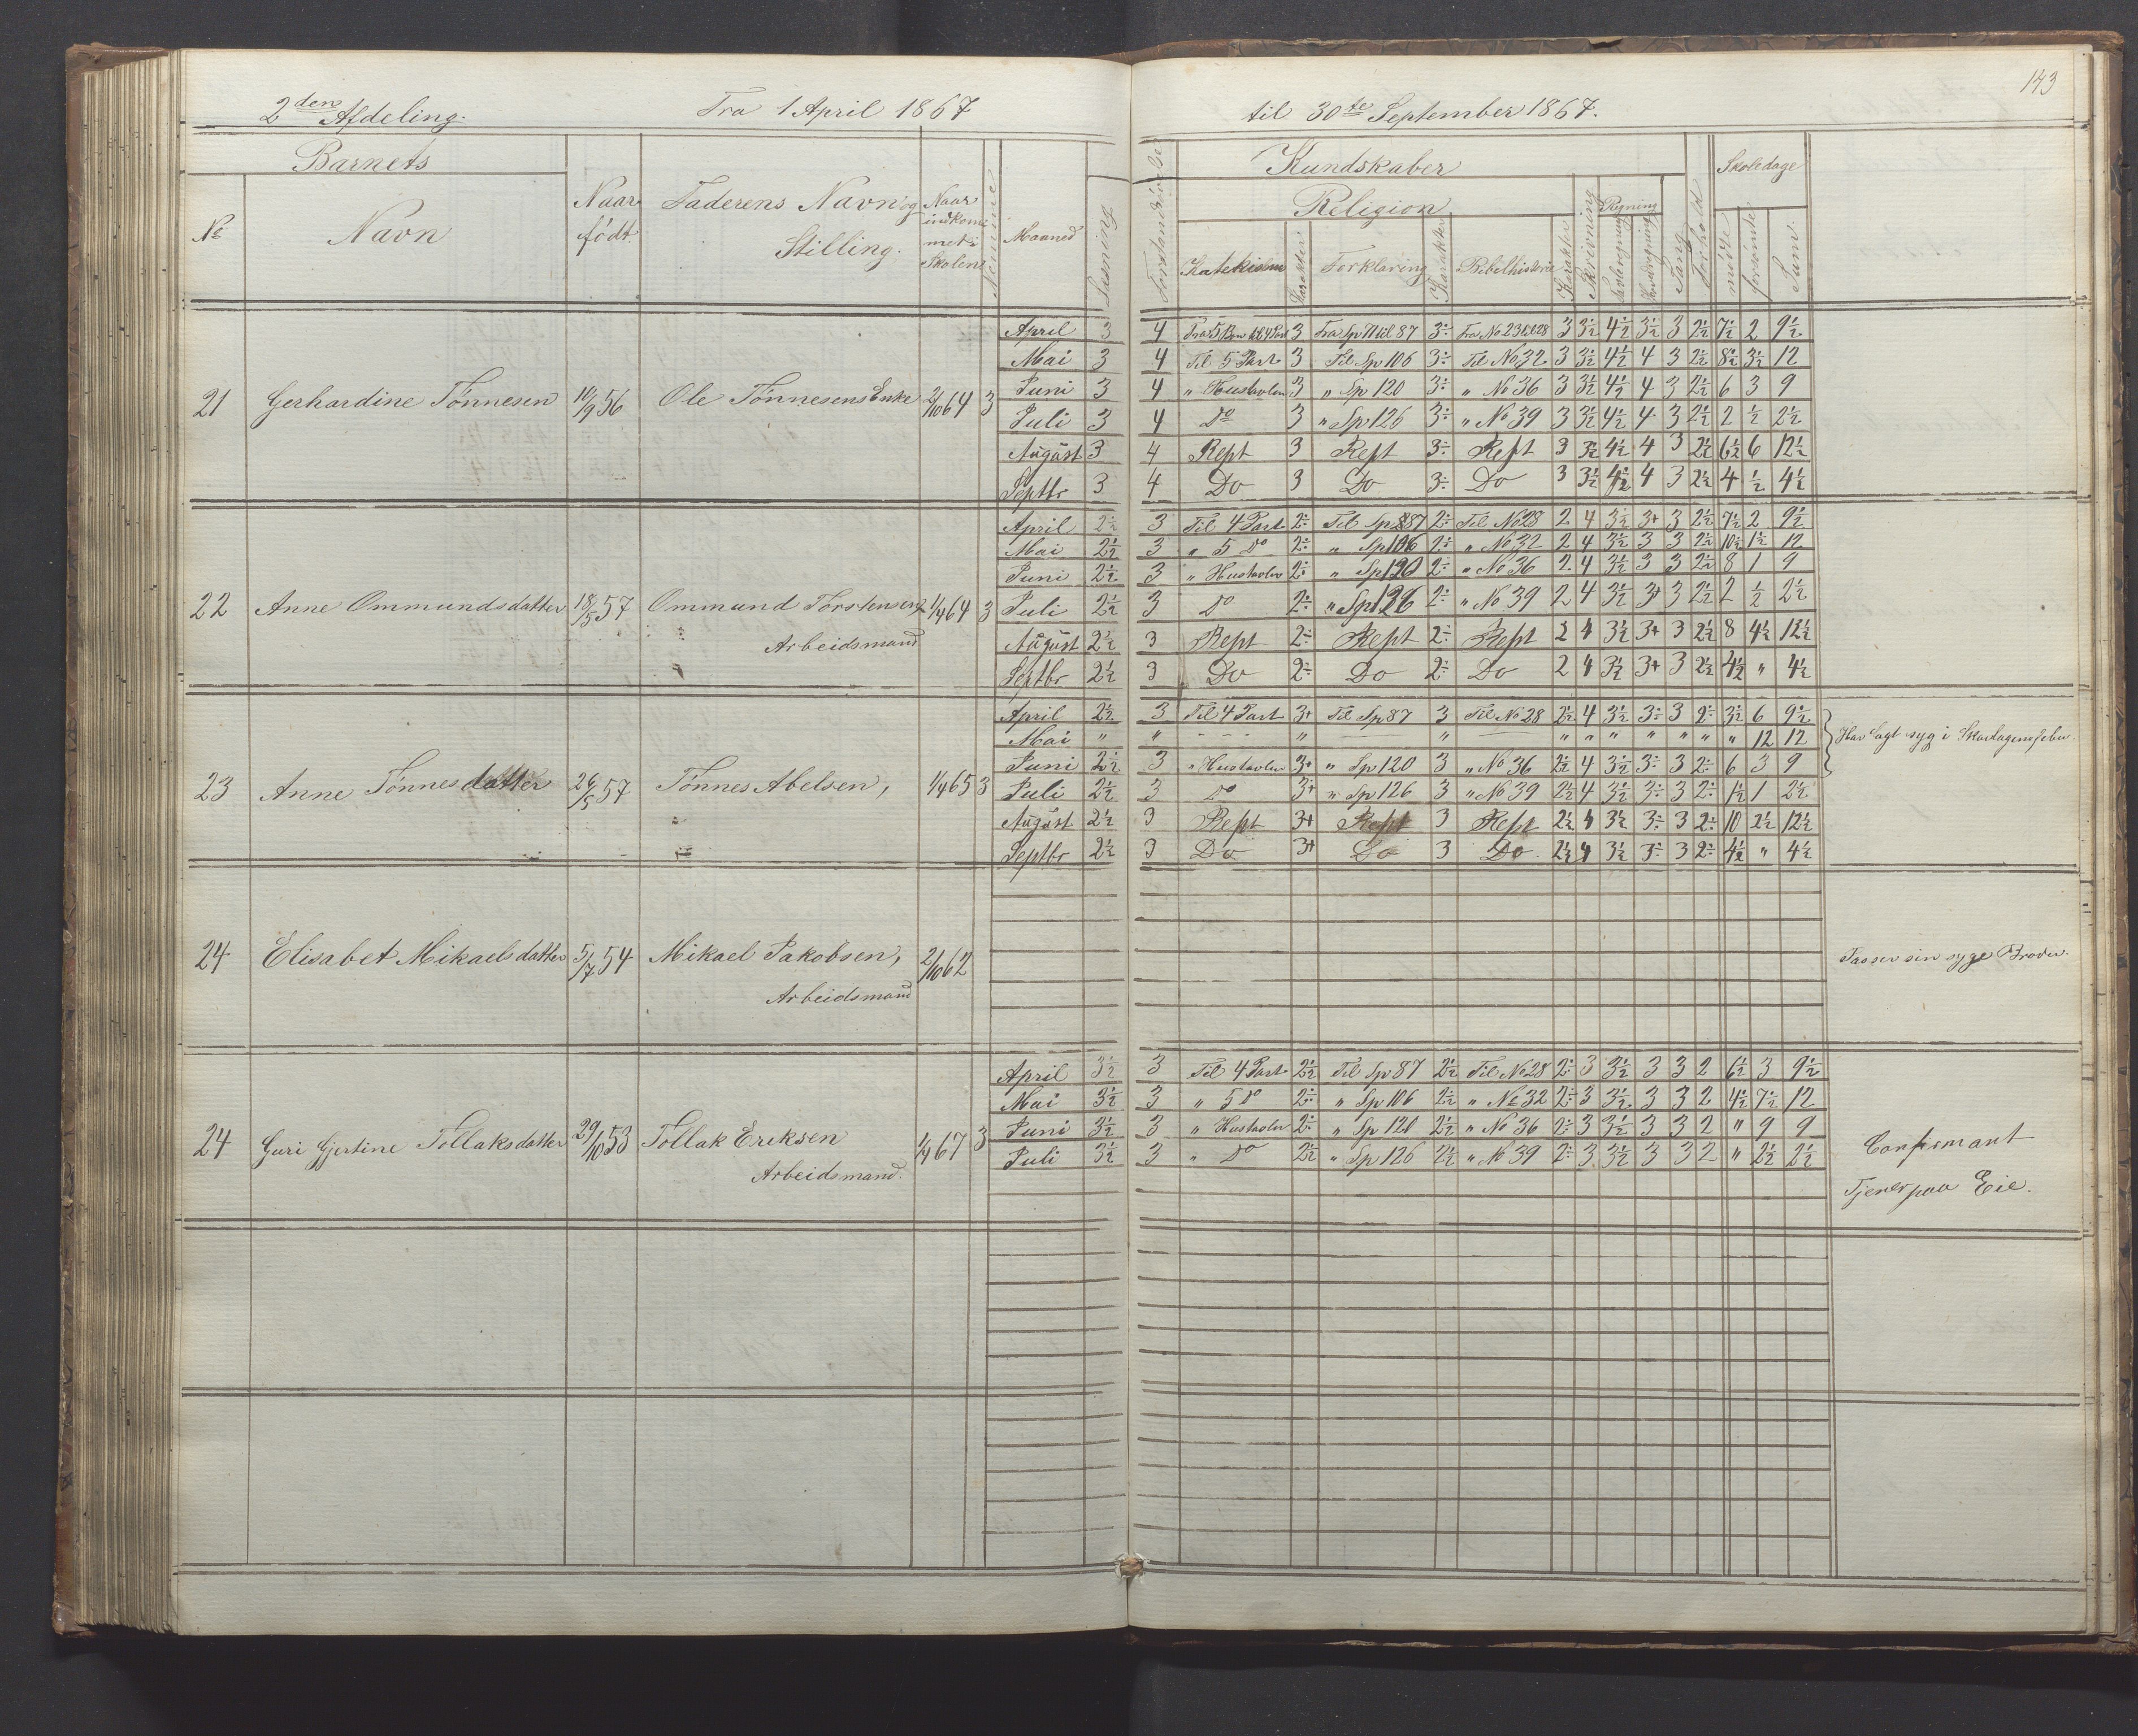 143
2den Afdeling. Fra 1 April 1867 til 30te September 1867.
Barnets
No Navn Naar født Faderens Navn og Stilling. Naar indkommet i Skolen Maaned Læsning Forstandsøvelse
Kundskaber
Religion
Katekism Karakter Forklaring Karakter Bibelhistorie Karakter Skrivning
Regning
Tavleregning Hovedregning Sang Forhold
Skoledage
mødte forsømte Sum
21 Gerhardine Tønnesen 10/9 56 Ole Tønnesens Enke 2/10 64 3
April 3 4 3 Fra Sp 71 til 87 3÷ Fra No 23 til 28 3 3½ 4½ 3½ 3 2½ 7½ 2 9½
Mai 3 4 Til 5 Part 3 Til Sp 106 3÷ Til No 32 3 3½ 4½ 4 3 2½ 8½ 3½ 12
Juni 3 4 " Hustavlen 3 " Sp 120 3÷ " No 36 3 3½ 4½ 4 3 2½ 6 3 9
Juli 3 4 Do 3 " Sp 126 3÷ " No 39 3 3½ 4½ 4 3 2½ 2 ½ 2½
August 3 4 Rept 3 Rept 3÷ Rept 3 3½ 4½ 4 3 2½ 6½ 6 12½
Septbr 3 4 Do 3 Do 3÷ Do 3 3½ 4½ 4 3 2½ 4 ½ 4½
22 Anne Ommundsdatter 18/5 57 Ommund Torstensen 1/4 64 3
Arbeidsmand
April 2½ 3 Til 4 Part 2÷ Til Sp 87 2÷ Til No 28 2 4 3½ 3+ 3 2½ 7½ 2 9½
Mai 2½ 3 " 5 Do 2÷ " Sp 106 2÷ " No 32 2 4 3½ 3 3 2½ 10½ 1½ 12
Juni 2½ 3 " Hustavlen 2÷ " Sp 120 2÷ " No 36 2 4 3½ 3 3 2½ 8 1 9
Juli 2½ 3 Do 2÷ " Sp 126 2÷ " No 39 2 4 3½ 3+ 3 2½ 2 ½ 2½
August 2½ 3 Rept 2÷ Rept 2÷ Rept 2 4 3½ 3+ 3 2½ 8 4½ 12½
Septbr 2½ 3 Do 2÷ Do 2÷ Do 2 4 3½ 3+ 3 2½ 4½ " 4½
23 Anne Tønnesdatter 26/5 57 Tønnes Abelsen, 1/4 65 3
April 2½ 3 Til 4 Part 3+ Til Sp 87 3 Til No 28 2½ 4 3½ 3÷ 3 2÷ 3½ 6 9½
Mai " " - - - " — " — " " " " " " " 12 12 Har lagt syg i Skarlagensfeber.
Juni 2½ 3 " Hustavlen 3+ " Sp 120 3 " No 36 2½ 4 3½ 3÷ 3 2÷ 6 3 9
Juli 2½ 3 Do 3+ " Sp 126 3 " No 39 2½ 4 3½ 3÷ 3 2÷ 1½ 1 2½
August 2½ 3 Rept 3+ Rept 3 Rept 2½ 4 3½ 3÷ 3 2÷ 10 2½ 12½
Septbr 2½ 3 Do 3+ Do 3 Do 2½ 4 3½ 3÷ 3 2÷ 4½ " 4½
24 Elisabet Mikaelsdatter 5/7 54 Mikael Jakobsen, 2/10 62 Passer sin syge Broder.
Arbeidsmand
24 Guri Gjertine Tollaksdatter 29/10 53 Tollak Eriksen 1/4 67 3
Arbeidsmand.
April 3½ 3 Til 4 Part 2½ Til Sp 87 2½ Til No 28 2÷ 3 3½ 3 3 2 6½ 3 9½
Mai 3½ 3 " 5 Do 2½ " Sp 106 2½ " No 32 2÷ 3 3½ 3 3 2 4½ 7½ 12
Juni 3½ 3 " Hustavlen 2½ " Sp 120 2½ " No 36 2÷ 3 3½ 3 3 2 " 9 9
Juli 3½ 3 " Do 2½ " Sp 126 2½ " No 39 2÷ 3 3½ 3 3 2 " 2½ 2½
Confirmant
Tjener paa Eie.